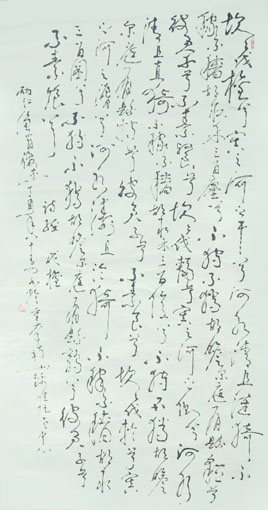 坎坎伐檀兮寘之河之干兮河水清且漣猗不
稼不穡胡取禾三百廛兮不狩不獵胡瞻爾庭有縣貆兮
彼君子兮不素餐兮坎坎伐輻兮寘之河之側兮河水
清且直猗不稼不穡胡取禾三百億兮不狩不獵胡瞻
爾庭有縣特兮彼君子兮不素食兮坎坎伐輪兮寘
之河之漘兮河水清且淪猗不稼不穡胡取禾
三百囷兮不狩不獵胡瞻爾庭有縣鶉兮彼君子兮
不素飧兮
詩經 伐檀